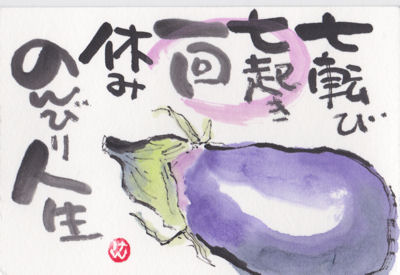 七転び
七起き
一回
休み
のんびり人生